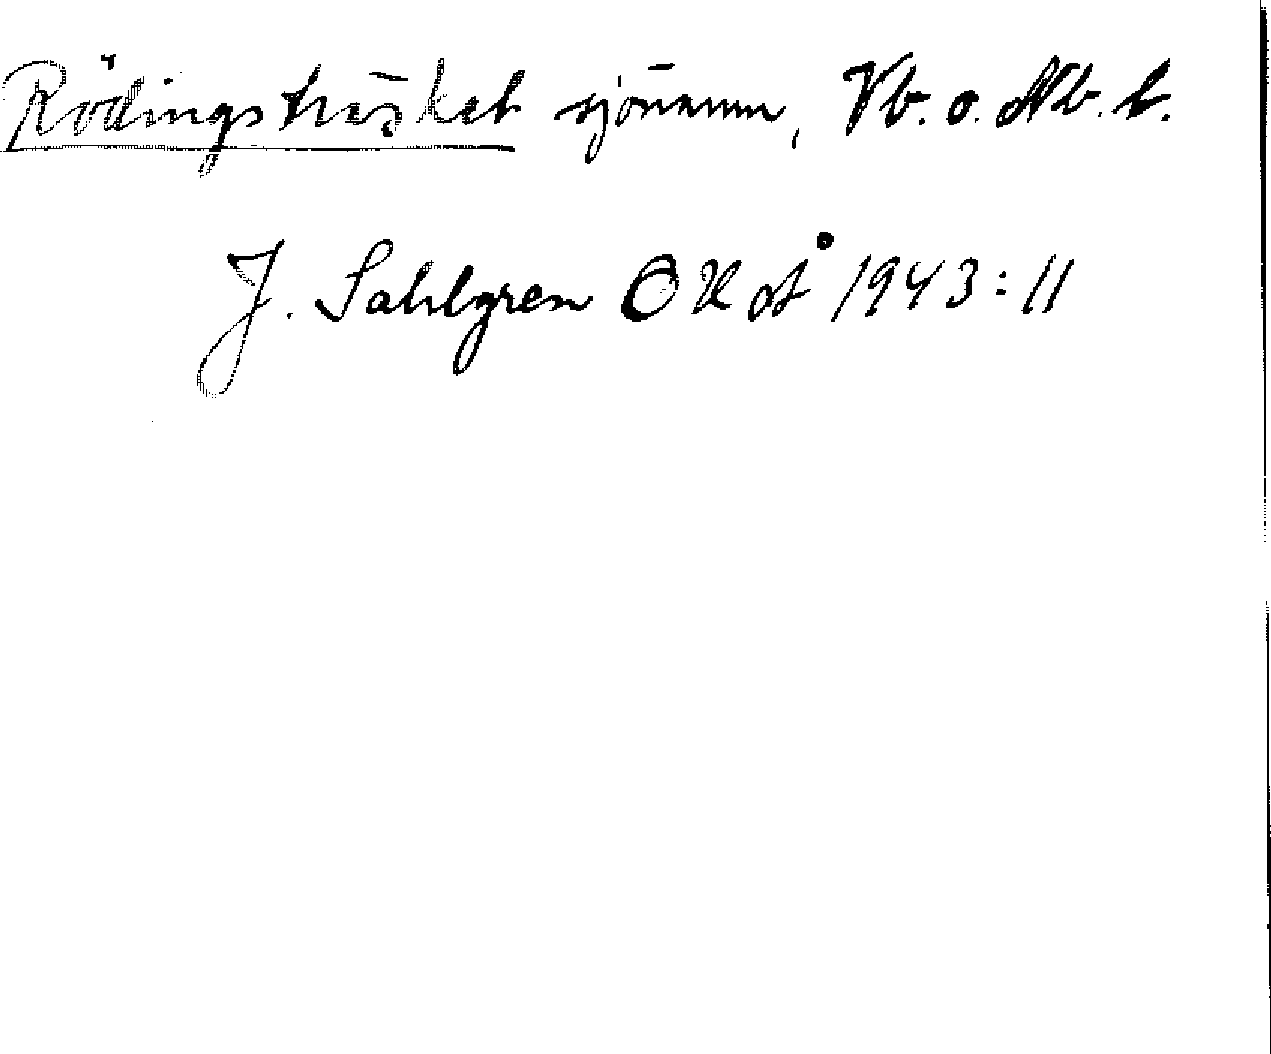 Rödingsträsket sjönamn, Vb. o. Nb. l.
J. Sahlgren OUoÅ 1943:11